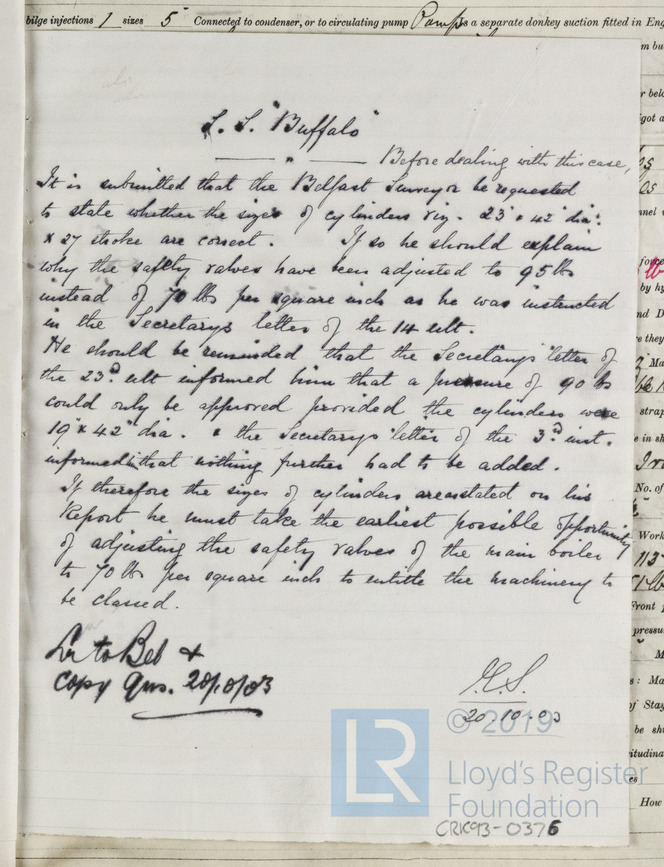 bilge injections 1 sizes 5" Connected to condenser, or to circulating pump Pumps a separate donkey suction fitted in Eng
S. S. "Buffalo"
Before dealing with this case,
It is submitted that the Belfast Surveyor be requested
to state whether the sizes of cylinders viz. 23" & 42" dia:
x 27 stroke are correct. If so he should explain
why the safety valves have been adjusted to 95 lbs
instead of 70 lbs per square inch as he was instructed
in the Secretary's letter of the 14 ult.
He should be reminded that the Secretary's letter of
the 23rd ult informed him that a pressure of 90 lbs
could only be approved provided the cylinders were
19" x 42" dia. & the Secretary's letter of the 3rd inst.
informed him that nothing further had to be added.
If therefore the sizes of cylinders are as stated on his
Report he must take the earliest possible opportunity
of adjusting the safety valves of the main boiler
to 70 lbs per square inch to entitle the machinery to
be classed.
Lr to Bel +
Copy Gns. 20/10/03
20.10.03
© 2019
LR
Lloyd's Register
Foundation
CRK93-0376